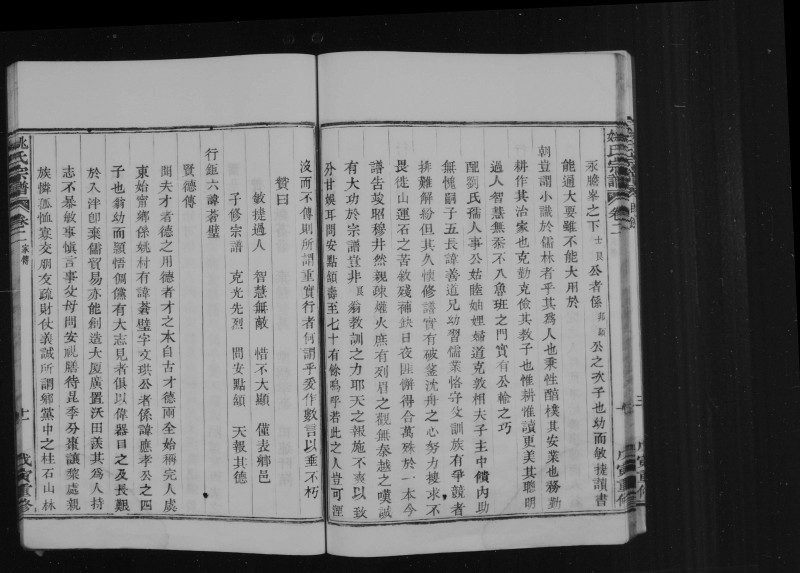 姚氏宗譜 卷二
承膽峯之下士良公者係邦顯公之次子也幼而敏㨗讀書
能通大要雖不能大用於
朝豈謂小識於儒林者乎其為人也秉性酷樸其安業也務勤
耕作其治家也克勤克儉其教子也惟耕惟讀更美其聰明
過人智慧無蔡不八魯班之門實有公輸之巧
配劉氏孺人事公姑睦妯娌婦道克敦相夫子主中饋內助
無愧嗣子五長諱善道兄幼習儒業恪守文訓族有爭競者
排難解紛但其久懷修譜實有破釜沈舟之心努力捜求不
畏徙山運石之苦斂殘補缺日夜匪懈得合萬殊於一本今
譜告竣昭穆井然親疎爟火庶有列眉之觀無秦越之嘆誠
有大功於宗譜豈非良翁教訓之力耶天之報施不爽以致
外甘娛耳問安點頷壽至七十有餘嗚乎若此之人豈可湮
沒而不傳則所謂重實行者何謂乎爰作數言以垂不朽
贊曰
敏㨗過人 智慧無敵 惜不大顯 僅表鄉邑
子修宗譜 克光先烈 問安點頷 天報其德
行鉅六諱蒼璧
賢德傳
聞夫才者德之用德者才之本自古才德兩全始稱完人處
東始甯鄉係姚村有諱蒼璧字文珙公者係諱應孝公之四
子也翁幼而穎悟倜儻有大志見者俱以偉器目之及長艱
於入泮卽棄儒貿易亦能創造大厦廣置沃田羨其為人持
志不暴敏事慎言事父母問安視膳待昆季分棗讓棃處親
族憐孤恤寡交朋友疏財仗義誠所謂鄉黨中之柱石山林
姚氏宗譜 卷二 家傳
十一 戊寅重修